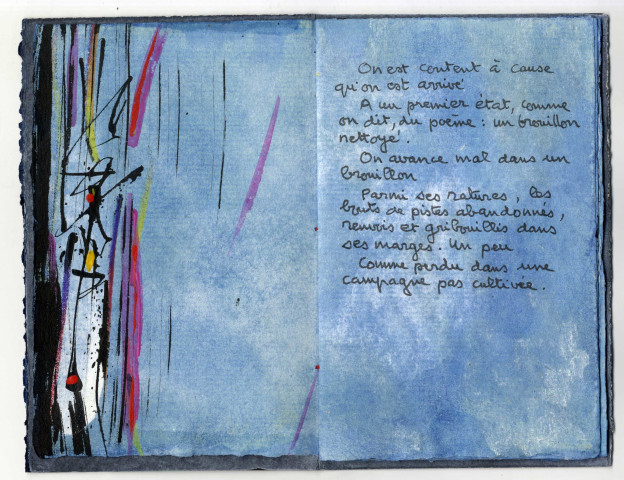 On est content à cause
qu'on est arrivé
A un premier état, comme
on dit, du poème : un brouillon
nettoyé.
On avance mal dans un
brouillon
Parmi ses ratures, les
bouts de pistes abandonnés,
renvois et gribouillis dans
ses marges. Un peu
Comme perdu dans une
campagne pas cultivée.